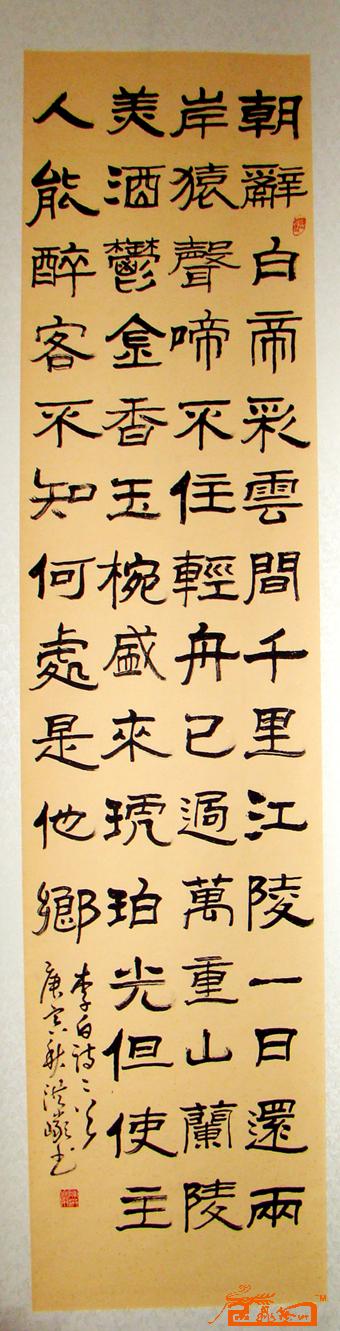 朝辭白帝彩雲間千里江陵一日還兩
岸猿聲啼不住輕舟已過萬重山蘭陵
美酒鬱金香玉椀盛來琥珀光但使主
人能醉客不知何處是他鄉
李白詩二首
庚寅秋洪书